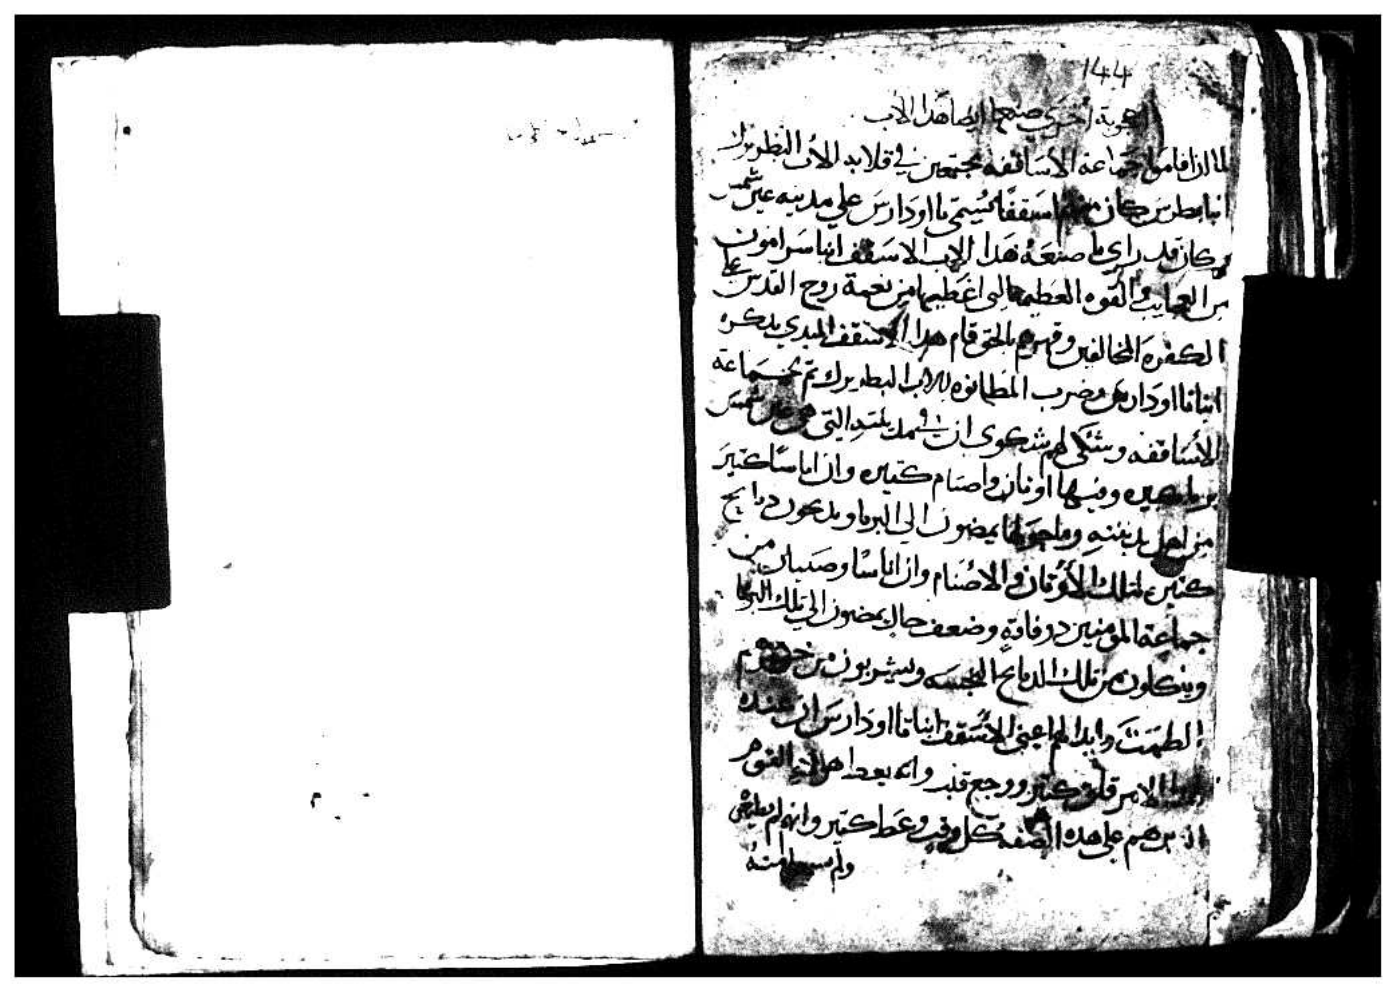 144
اعجوبة اخرى صنعها ايضا هدا الاب
لما ان اقاموا جماعة الاساقفه مجتمعين في قلاية الاب البطريرك
انبا بطرس كان منهم اسقفا يسمى تااودارس على مدينه عين شمس
وكان قد راي ما صنعه هدا الاب الاسقف انبا سرامون
من العجايب والقوه العظيمه التي اعطيها من نعمة روح القدس على
الكفره المخالفين وقهرهم بالحق قام هدا الاسقف المبدي بدكره
انبا تااودارس وضرب المطانوه للاب البطريرك تم لجماعة
الاساقفه وشكى لهم شكوى ان في بلده التي هي عين شمس
بربا كبيره وفيها اوتان واصنام كتيره وان اناسا كتير
من اهل مدينته وما حولها يمضون الي البربا ويدبحون دبايح
كتيره لتلك الاوتان والاصنام وان اناسا وصبيان من
جماعة المومنين دو فاقه وضعف حال يمضون الي تلك البربا
وياكلون من تلك الدبايح النجسه ويشربون من خمرهم
الطمت وابدا لهم اعنى الاسقف انبا تااودارس ان عنده
لهدا الامر قلق كتير ووجع قلب وانه يعظ اهولاي القوم
الدين هم على هده الصفه كل وقت وعظ كتير وانهم لم
ولم يسمعوا منه